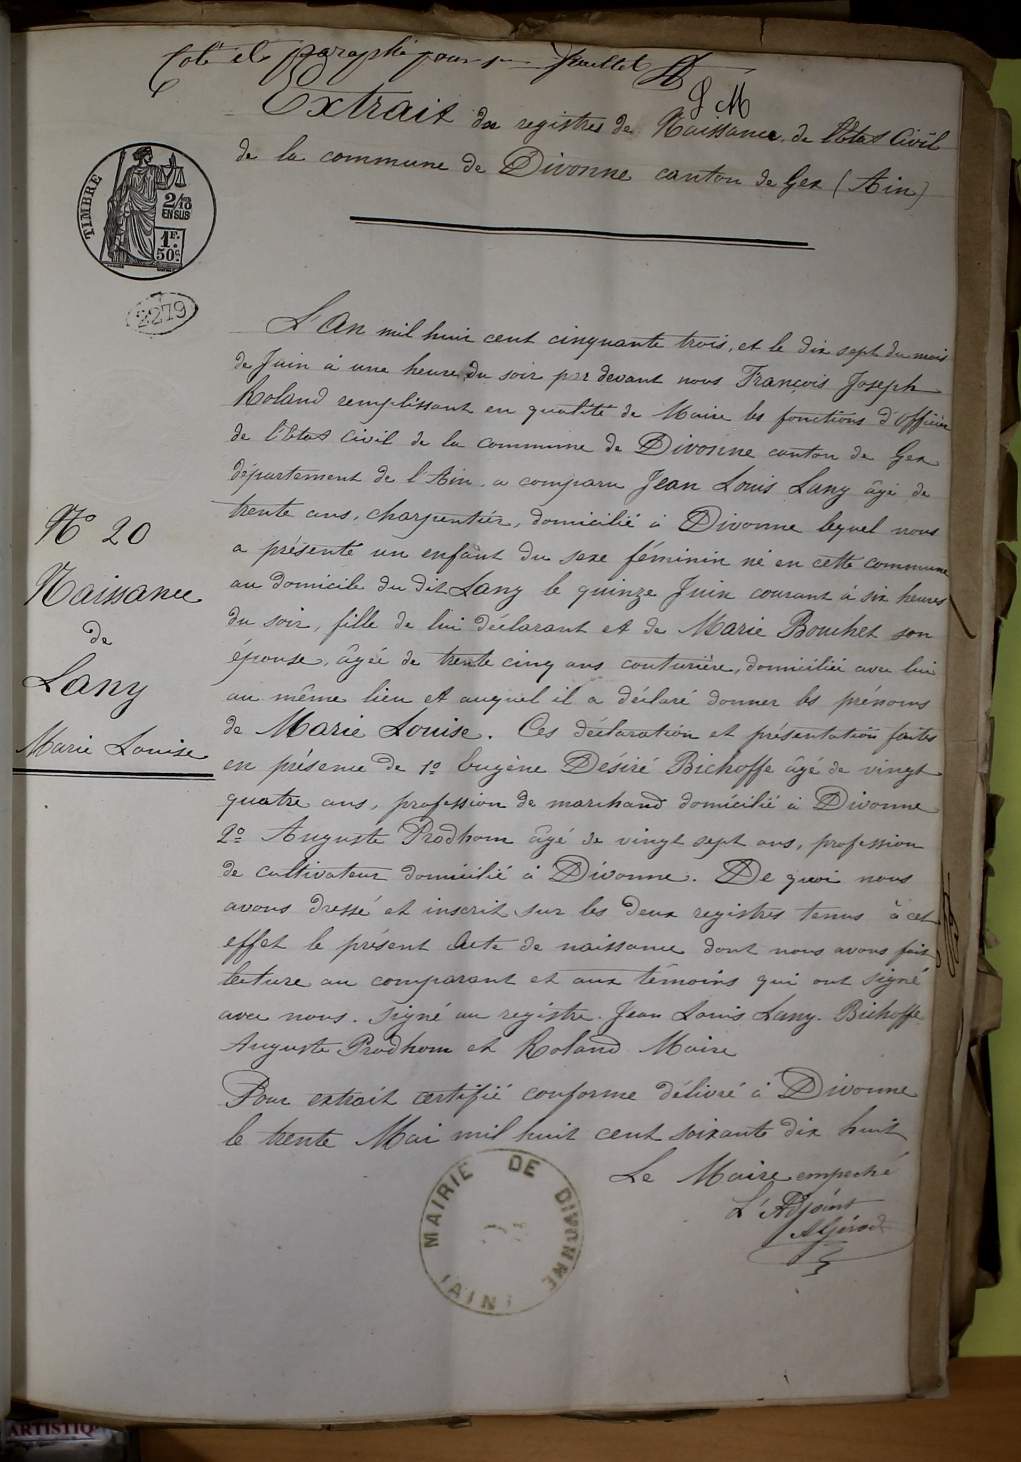 Coté et paraphé pour un feuillet
P M
Extrait du registre de Naissance de l'Etat Civil
de la commune de Divonne canton de Gex (Ain)
TIMBRE
2/10
EN SUS
1F.
50c.
2279
L'An mil huit cent cinquante trois, et le dix sept du mois
de Juin à une heure du soir par devant nous François Joseph
Roland remplissant en qualité de Maire les fonctions d'officier
de l'Etat Civil de la commune de Divonne canton de Gex
département de l'Ain, a comparu Jean Louis Lany âgé de
trente ans, charpentier, domicilié à Divonne lequel nous
a présenté un enfant du sexe féminin né en cette commune
au domicile du dit Lany le quinze Juin courant à six heures
du soir, fille de lui déclarant et de Marie Bouchet son
épouse, âgée de trente cinq ans couturière, domiciliée avec lui
au même lieu et auquel il a déclaré donner les prénoms
de Marie Louise. Ces déclaration et présentation faites
en présence de 1º Eugène Désiré Bichoffe âgé de vingt
quatre ans, profession de marchand domicilié à Divonne
2º Auguste Prodhom âgé de vingt sept ans, profession
de cultivateur domicilié à Divonne. De quoi nous
avons dressé et inscrit sur les deux registres tenus à cet
effet le présent Acte de naissance dont nous avons fait
lecture au comparant et aux témoins qui ont signé
avec nous. Signé au registre. Jean Louis Lany. Bichoffe
Auguste Prodhom et Roland Maire
Pour extrait certifié conforme délivré à Divonne
le trente Mai mil huit cent soixante dix huit
Le Maire empeché
L'Adjoint
Nº 20
Naissance
de
Lany
Marie Louise
MAIRIE DE DIVONNE
(AIN)
ARTISTIQ